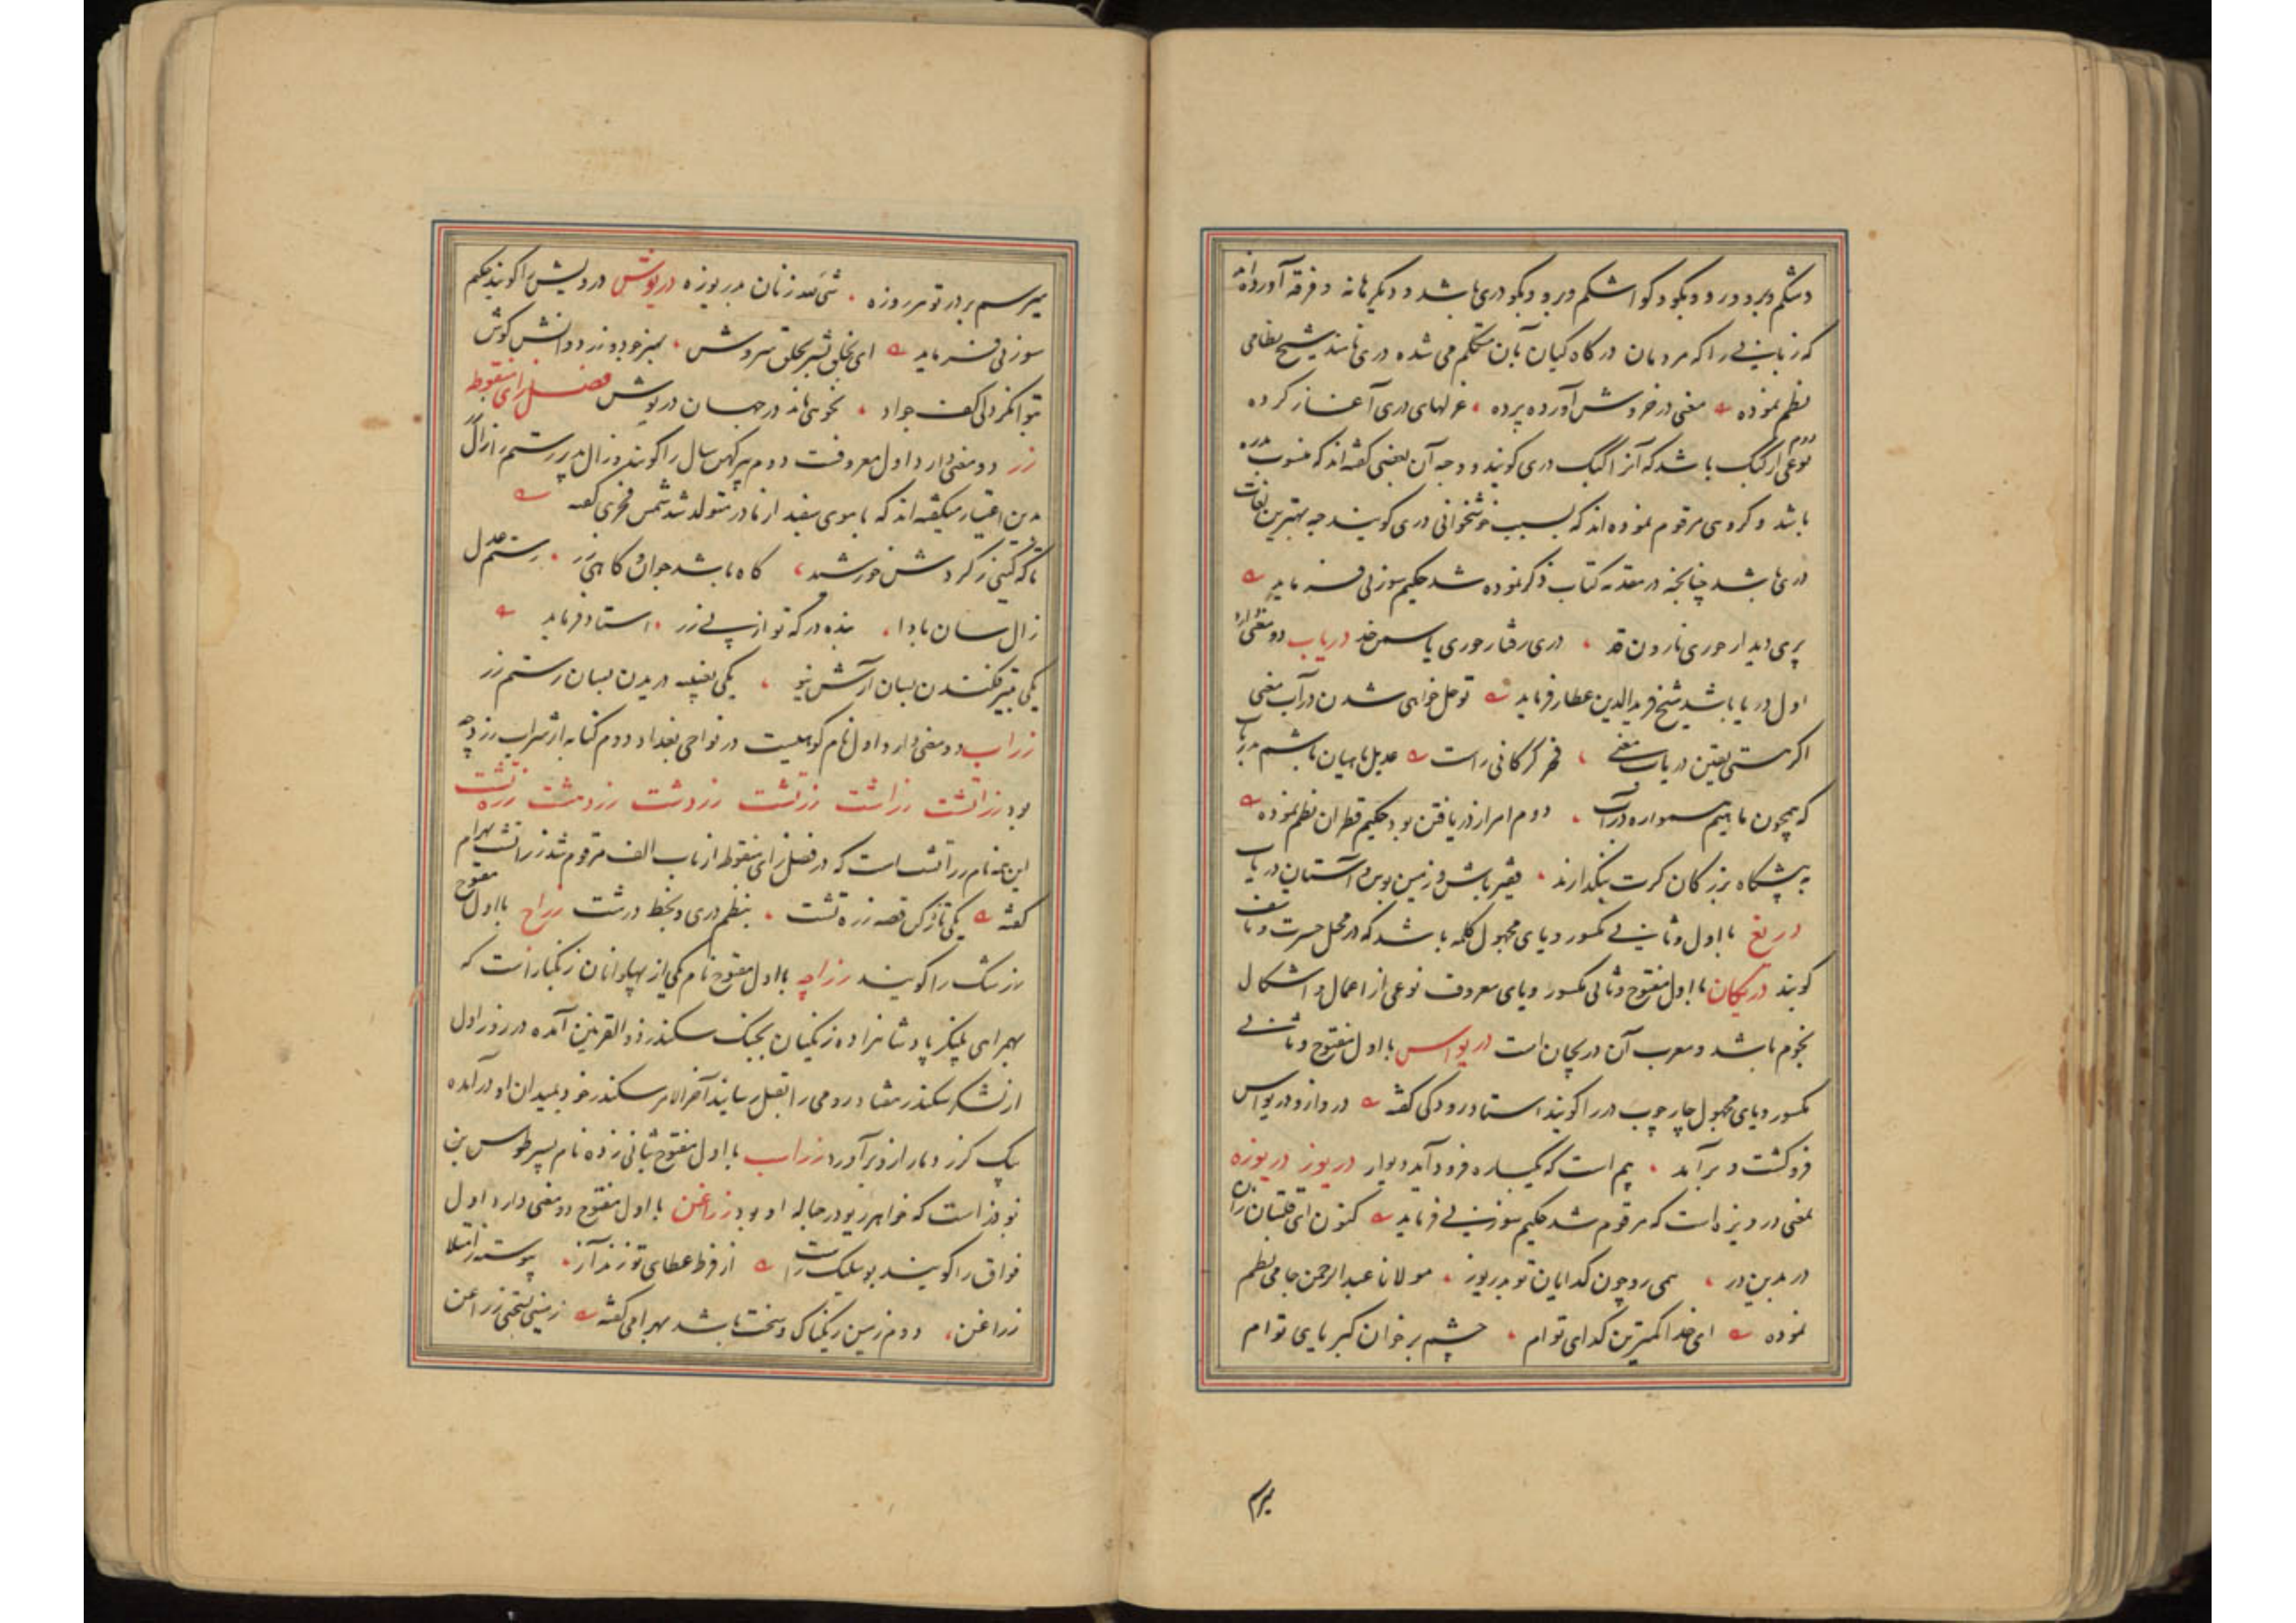 دشکم و برو درو و بگو دکو اشکم و برو و بگو دری باشد و دیگر هانه و فرقه آورده اند
که زبانی را که مردمان درگاه کیان بآن متکلم می شده دری نامند شیخ نظامی
نظم نموده مغنی در خروش آورده پرده غزلهای دری آغاز کرده
دوم نوعی از کبک باشد که آنرا کبک دری کویند و وجه آن بعضی کفته اند که منسوب بدره
باشد و کروهی مرقوم نموده اند که بسبب خوشخوانی دری کویند چه بهترین لغات
دری باشد چنانچه در مقدمه کتاب ذکر نموده شد حکیم سوزنی فرماید
پری دیدار حوری نارون قد دری رفتار حوری یاسمن خد دریاب دو معنی دارد
اول دریا باشد شیخ فریدالدین عطار فرماید تو حل خواهی شدن در آب معنی
اکر هستی یقین دریاب معنی فخر کرکانی راست عدیل ماهیان باشم بدریاب
که همچون ماهیم همواره در آب دوم امر از دریافتن بود حکیم قطران نظم نموده
به پیشکاه بزرکان کرت بنکدارند فقیر باش و زمین بوس و آستان دریاب
دریغ با اول و ثانی مکسور و یای مجهول کلمه باشد که در محل حسرت و تاسف
کویند دریکان با اول مفتوح و ثانی مکسور و یای معروف نوعی از اعمال و اشکال
نجوم باشد و معرب آن دریجان است دریواس با اول مفتوح و ثانی
مکسور و یای مجهول چارچوب در را کویند استاد رودکی کفته در دازو دریواس
فرو کشت و برآمد بیم است که یکباره فرود آید دیوار دریوز دریوزه
بمعنی درویزه است که مرقوم شد حکیم سوزنی فرماید کنون ای قلتبان زن را
در بدین در همی رو چون کدایان تو بدریوز مولانا عبدالرحمن جامی نظم
نموده ای خدا کمترین کدای توام چشم بر خوان کبریای توام
میرسم
میرسم بر در تو هر روزه شیء لله زنان بدریوزه دریوش درویش را کویند حکیم
سوزنی فرماید ای بخلق بشر بخلق سروش بهنر و دو زر و دانش کوش
توانکر دلی کف جواد بخوشی ماند در جهان دریوش فصل زای منقوطه
زر دو معنی دارد اول معروفست دوم پیر کهن سال را کویند و زال پدر رستم را زال زر
بدین اعتبار میکفته اند که با موی سفید از مادر متولد شد شمس فخری کفته
تا که کیتی ز کردش خورشید کاه باشد جوان و کاهی زر رستم دل
زال سان بادا بنده درکه تو از پی زر استاد فرماید
یکی بتیر فکندن بسان آرش نیو یکی بحمله دریدن بسان رستم زر
زراب دو معنی دارد اول نام کوهیست در نواحی بغداد دوم کنایه از شراب زرد چه
بود زراتشت زراشت زرتشت زردشت زردهشت زره تشت
این همه نام زراتشت است که در فصل زای منقوطه از باب الف مرقوم شد زراتشت بهرام
کفته یکی تازه کن قصه زره تشت بنظم دری و بخط درشت زراج با اول مفتوح
زرشک را کویند زراجه با اول مفتوح نام یکی از پهلوانان زنکبار است که
بهمراهی پلنکر پادشاهزاده زنکیان بجنک سکندر ذوالقرنین آمده در روز اول
از لشکر سکندر هفتاد رومی را بقتل رسانید آخر الامر سکندر خود بمیدان او درآمده
بیک کرز دمار از و برآورد زراسب با اول مفتوح بثانی زده نام پسر طوس بن
نوذر است که خواهر ریو در حباله او بود زراغن با اول مفتوح دو معنی دارد اول
فواق را کویند بوسلیک راست از فرط عطای تو زند آز پیوسته ز امتلا
زراغن دوم زمین ریکناک و سخت باشد بهرامی کفته زمینی لنجنی زراغن